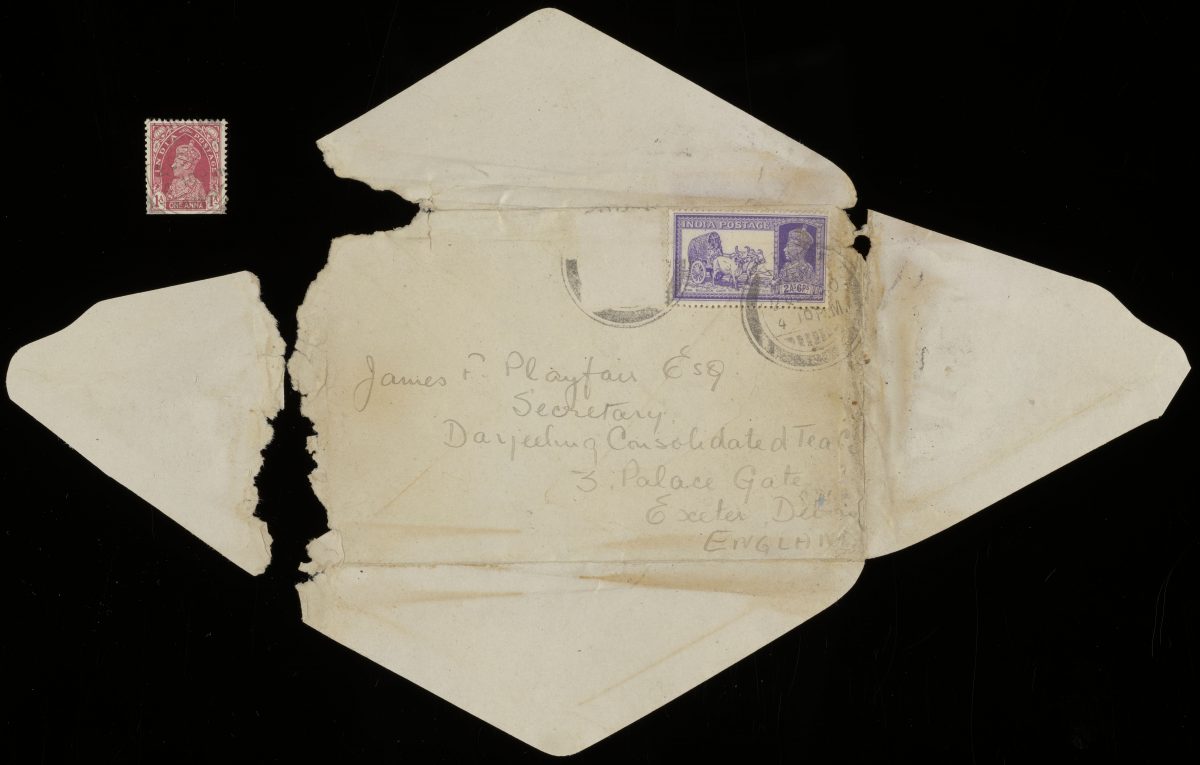 INDIA POSTAGE
1A ONE ANNA 1A
INDIA POSTAGE
2As6Ps
4 
James F. Playfair Esq
Secretary
Darjeeling Consolidated Tea
3. Palace Gate
Exeter
ENGLAN